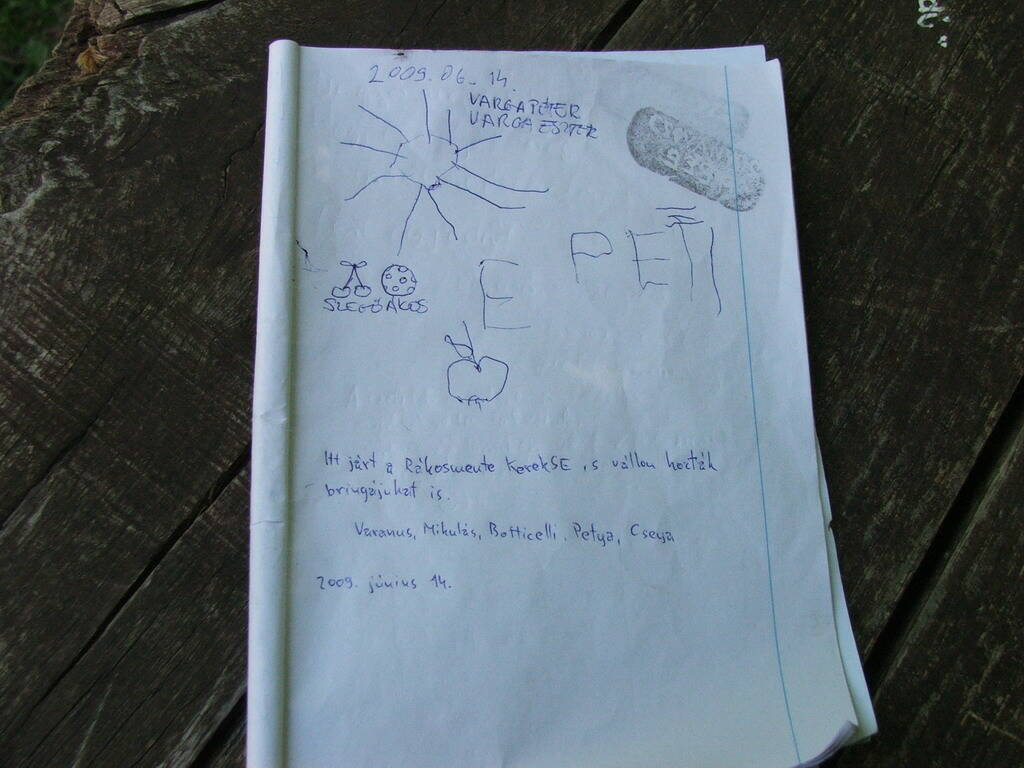 2009. 06. 14.
VARGA PÉTER
VARGA ESZTER
PETI
E
SZEGŐ ÁKOS
Itt járt a Rákosmente KerekSE, s vállon hozták
bringájukat is.
Varanus, Mikulás, Botticelli, Petya, Cseya
2009. június 14.